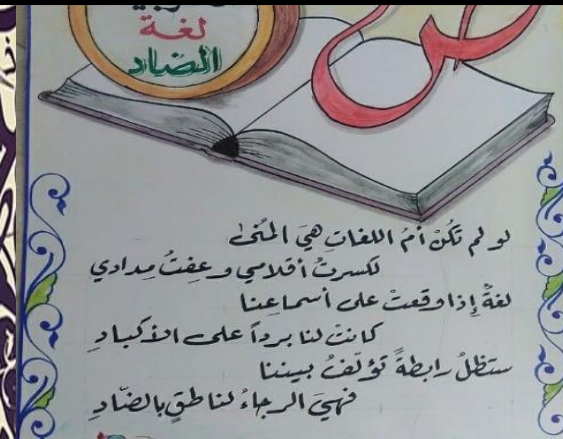 لغة
الضاد
ض
لو لم تكُنْ أمُ اللغاتِ هيَ المُنى
لكسرتُ أقلامي وعِفتُ مِدادي
لغةٌ إذا وقعتْ على أسماعِنا
كانتْ لنا برداً على الأكبادِ
ستظلُ رابطةً تؤلّفُ بيننا
فهيَ الرجاءُ لناطقٍ بالضّادِ